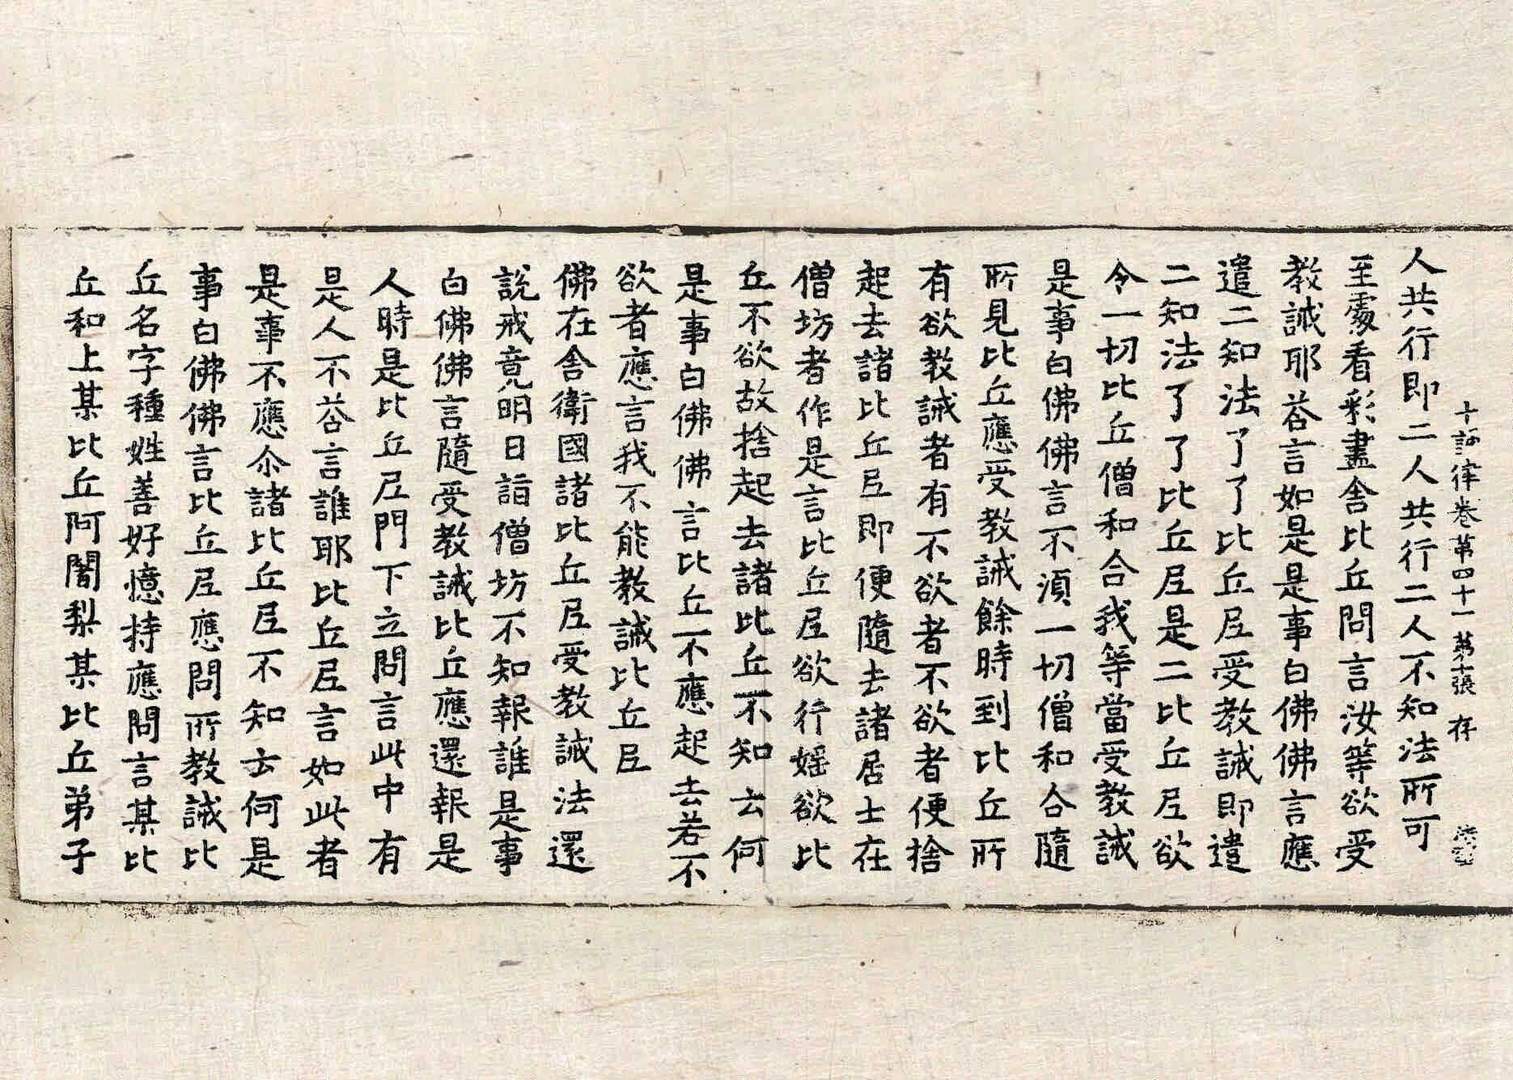 十誦律卷第四十一　第十張　存
人共行即二人共行二人不知法所可
至處看彩畫舍比丘問言汝等欲受
教誡耶荅言如是是事白佛佛言應
遣二知法了了比丘尼受教誡即遣
二知法了了比丘尼是二比丘尼欲
令一切比丘僧和合我等當受教誡
是事白佛佛言不須一切僧和合隨
所見比丘應受教誡餘時到比丘所
有欲教誡者有不欲者不欲者便捨
起去諸比丘尼即便隨去諸居士在
僧坊者作是言比丘尼欲行婬欲比
丘不欲故捨起去諸比丘不知云何
是事白佛佛言比丘不應起去若不
欲者應言我不能教誡比丘尼
佛在舍衛國諸比丘尼受教誡法還
說戒竟明日詣僧坊不知報誰是事
白佛佛言隨受教誡比丘應還報是
人時是比丘尼門下立問言此中有
是人不荅言誰耶比丘尼言如此者
是事不應尒諸比丘尼不知云何是
事白佛佛言比丘尼應問所教誡比
丘名字種姓善好憶持應問言某比
丘和上某比丘阿闍梨某比丘弟子